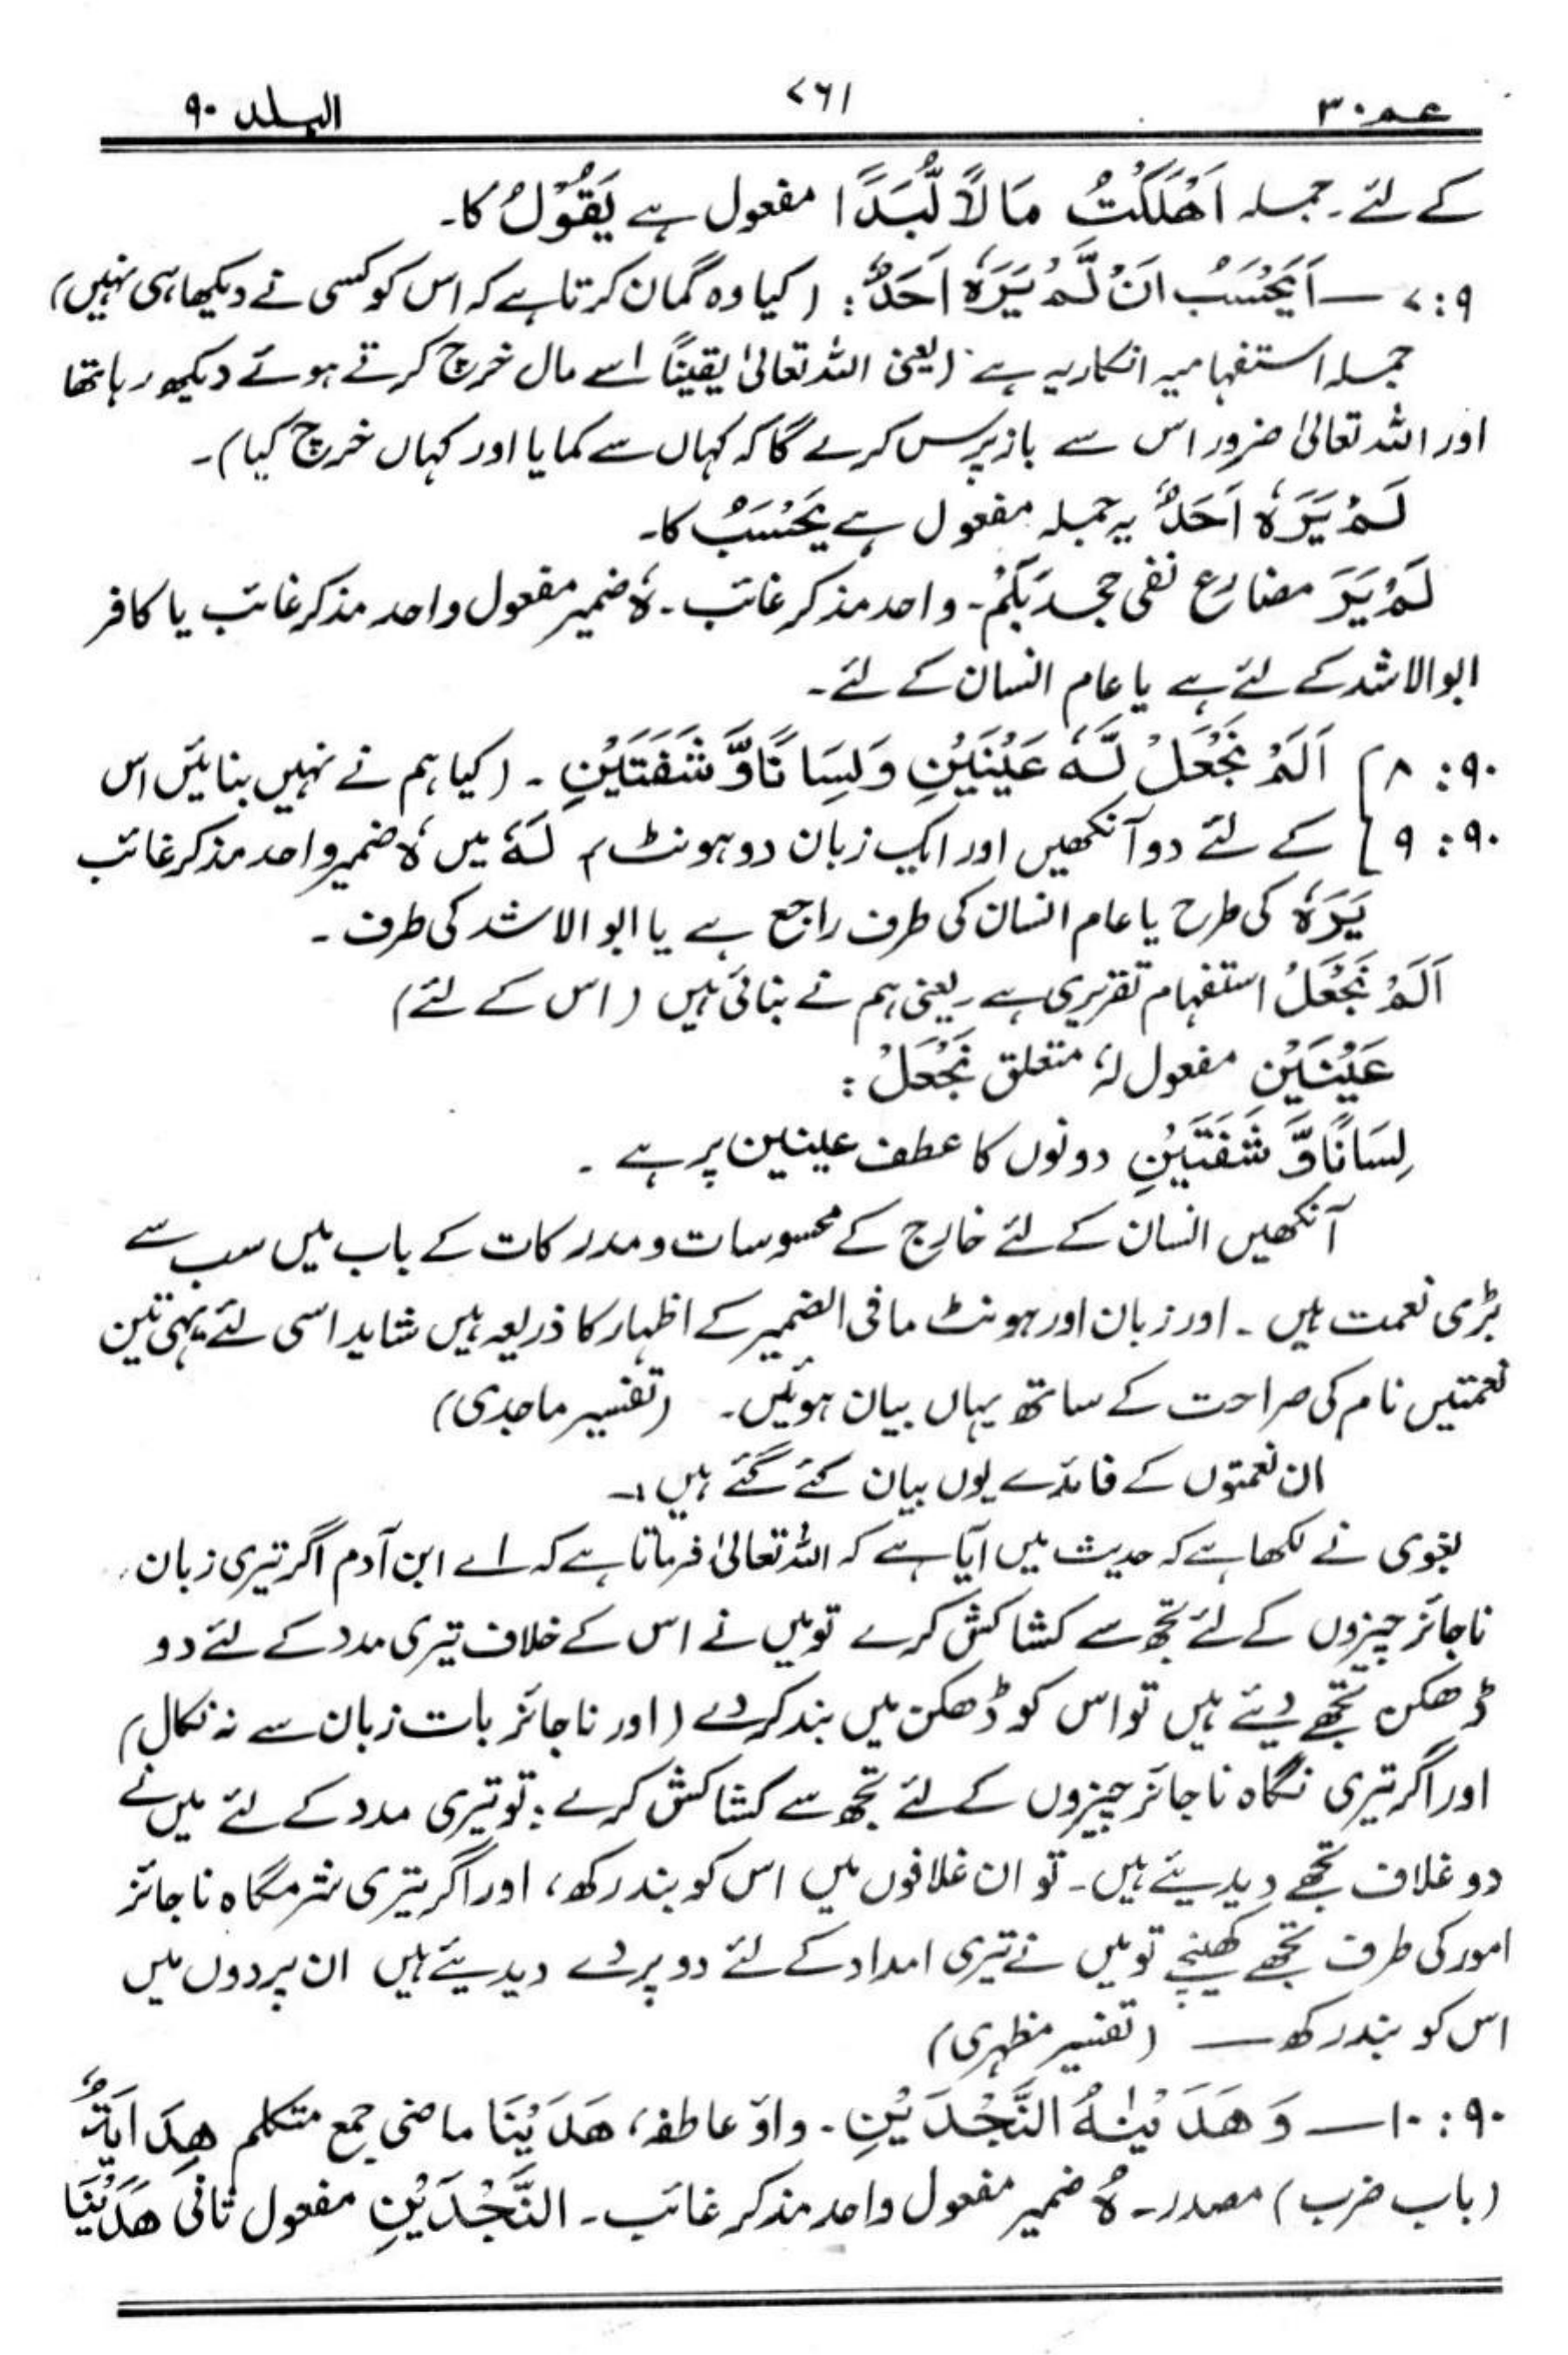 عم ۳۰ ۷۶۱ البلد ۹۰
کے لئے۔ جملہ اَھْلَکْتُ مَالاً لُّبَدًا مفعول ہے یَقُوْلُ کا۔
۹ : ۷ — اَیَحْسَبُ اَنْ لَّمْ یَرَہٗ اَحَدٌ : (کیا وہ گمان کرتا ہے کہ اس کو کسی نے دیکھا ہی نہیں)
جملہ استفہامیہ انکاریہ ہے (یعنی اللہ تعالیٰ یقیناً اسے مال خرچ کرتے ہوئے دیکھ رہا تھا
اور اللہ تعالیٰ ضرور اس سے بازپرس کرے گا کہ کہاں سے کمایا اور کہاں خرچ کیا)۔
لَمْ یَرَہٗ اَحَدٌ یہ جملہ مفعول ہے یَحْسَبُ کا۔
لَمْ یَرَ مضارع نفی جحد بَلَمْ۔ واحد مذکر غائب۔ ہٗ ضمیر مفعول واحد مذکر غائب یا کافر
ابوالاشد کے لئے ہے یا عام انسان کے لئے۔
۹۰ : ۸} اَلَمْ نَجْعَلْ لَّہٗ عَیْنَیْنِ وَلِسَانًا وَّشَفَتَیْنِ ۔ (کیا ہم نے نہیں بنائیں اس
۹۰ : ۹} کے لئے دو آنکھیں اور ایک زبان دو ہونٹ) لَہٗ میں ہٗ ضمیر واحد مذکر غائب
یَرَہٗ کی طرح یا عام انسان کی طرف راجع ہے یا ابو الاشد کی طرف ۔
اَلَمْ نَجْعَلْ استفہام تقریری ہے۔ یعنی ہم نے بنائی ہیں (اس کے لئے)
عَیْنَیْنِ مفعول لہٗ متعلق نَجْعَلْ :
لِسَانًا وَّ شَفَتَیْنِ دونوں کا عطف عینین پر ہے ۔
آنکھیں انسان کے لئے خارج کے محسوسات و مدرکات کے باب میں سب سے
بڑی نعمت ہیں ۔ اور زبان اور ہونٹ مافی الضمیر کے اظہار کا ذریعہ ہیں شاید اسی لئے یہی تین
نعمتیں نام کی صراحت کے ساتھ یہاں بیان ہوئیں۔ (تفسیر ماجدی)
ان نعمتوں کے فائدے یوں بیان کئے گئے ہیں :۔
بغوی نے لکھا ہے کہ حدیث میں آیا ہے کہ اللہ تعالیٰ فرماتا ہے کہ اے ابن آدم اگر تیری زبان
ناجائز چیزوں کے لئے تجھ سے کشاکش کرے تو میں نے اس کے خلاف تیری مدد کے لئے دو
ڈھکن تجھے دیئے ہیں تو اس کو ڈھکن میں بند کر دے (اور ناجائز بات زبان سے نہ نکال)
اور اگر تیری نگاہ ناجائز چیزوں کے لئے تجھ سے کشاکش کرے : تو تیری مدد کے لئے میں نے
دو غلاف تجھے دیدیئے ہیں۔ تو ان غلافوں میں اس کو بند رکھ، اور اگر تیری شرمگاہ ناجائز
امور کی طرف تجھے کھینچے تو میں نے تیری امداد کے لئے دو پردے دیدیئے ہیں ان پردوں میں
اس کو بند رکھ — (تفسیر مظہری)
۹۰ : ۱۰ — وَ ھَدَیْنٰہُ النَّجْدَیْنِ ۔ واؤ عاطفہ، ھَدَیْنَا ماضی جمع متکلم ھِدَایَۃٌ
(باب ضرب) مصدر۔ ہٗ ضمیر مفعول واحد مذکر غائب۔ النَّجْدَیْنِ مفعول ثانی ھَدَیْنَا